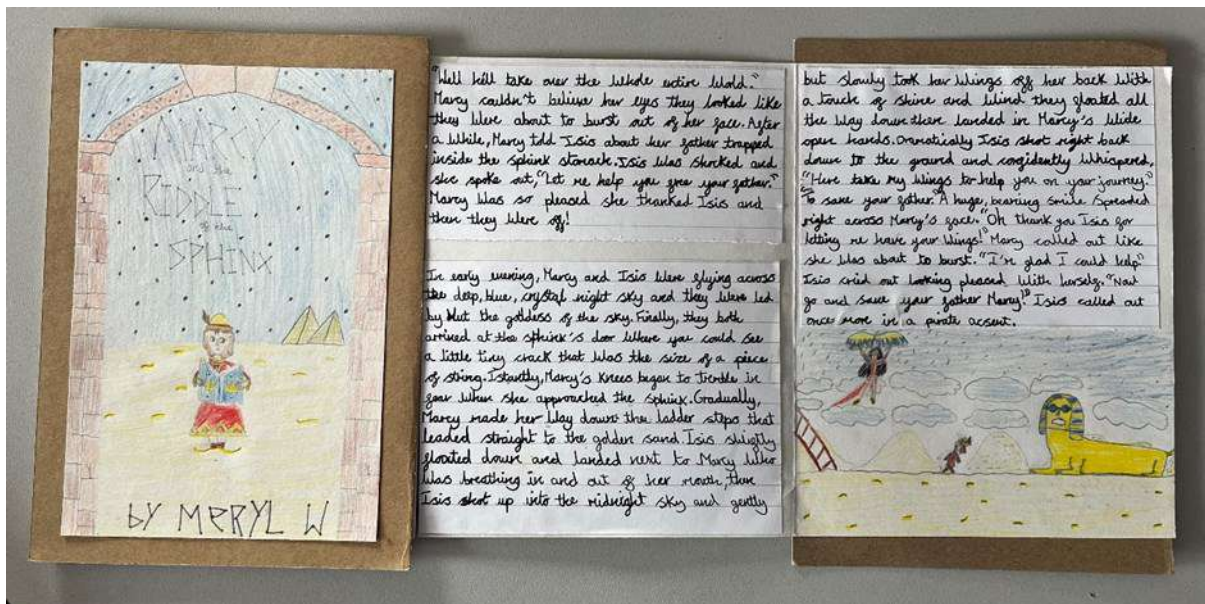 MARCY
and the
RIDDLE
of the
SPHINX
by MERYL W
"Well he'll take over the whole entire World."
Marcy couldn't believe her eyes they looked like
they were about to burst out of her face. After
a while, Marcy told Isis about her father trapped
inside the sphink stomach. Isis was shocked and
she spoke out, "Let me help you free your father."
Marcy was so pleased she thanked Isis and
then they were off!
In early evening, Marcy and Isis were flying across
the deep, blue, crystal night sky and they were led
by Nut the goddess of the sky. Finally, they both
arrived at the sphink's door where you could see
a little tiny crack that was the size of a piece
of string. Istantly, Marcy's knees began to tremble in
fear when she approached the sphink. Gradually,
Marcy made her way down the ladder steps that
leaded straight to the golden sand. Isis slightly
floated down and landed next to Marcy who
was breathing in and out of her mouth, then
Isis shot up into the midnight sky and gently
but slowly took her wings off her back with
a touch of shine and wind they floated all
the way down there landed in Marcy's wide
open hands. Dramatically Isis shot right back
down to the ground and confidently whispered,
"Here take my wings to help you on your journey."
"To save your father." A huge, beaming smile spreaded
right across Marcy's face. "Oh thank you Isis for
letting me have your wings!" Marcy called out like
she was about to burst. "I'm glad I could help"
Isis cried out looking pleased with herself. "Now
go and save your father Marcy!" Isis called out
once more in a pirate acsent.